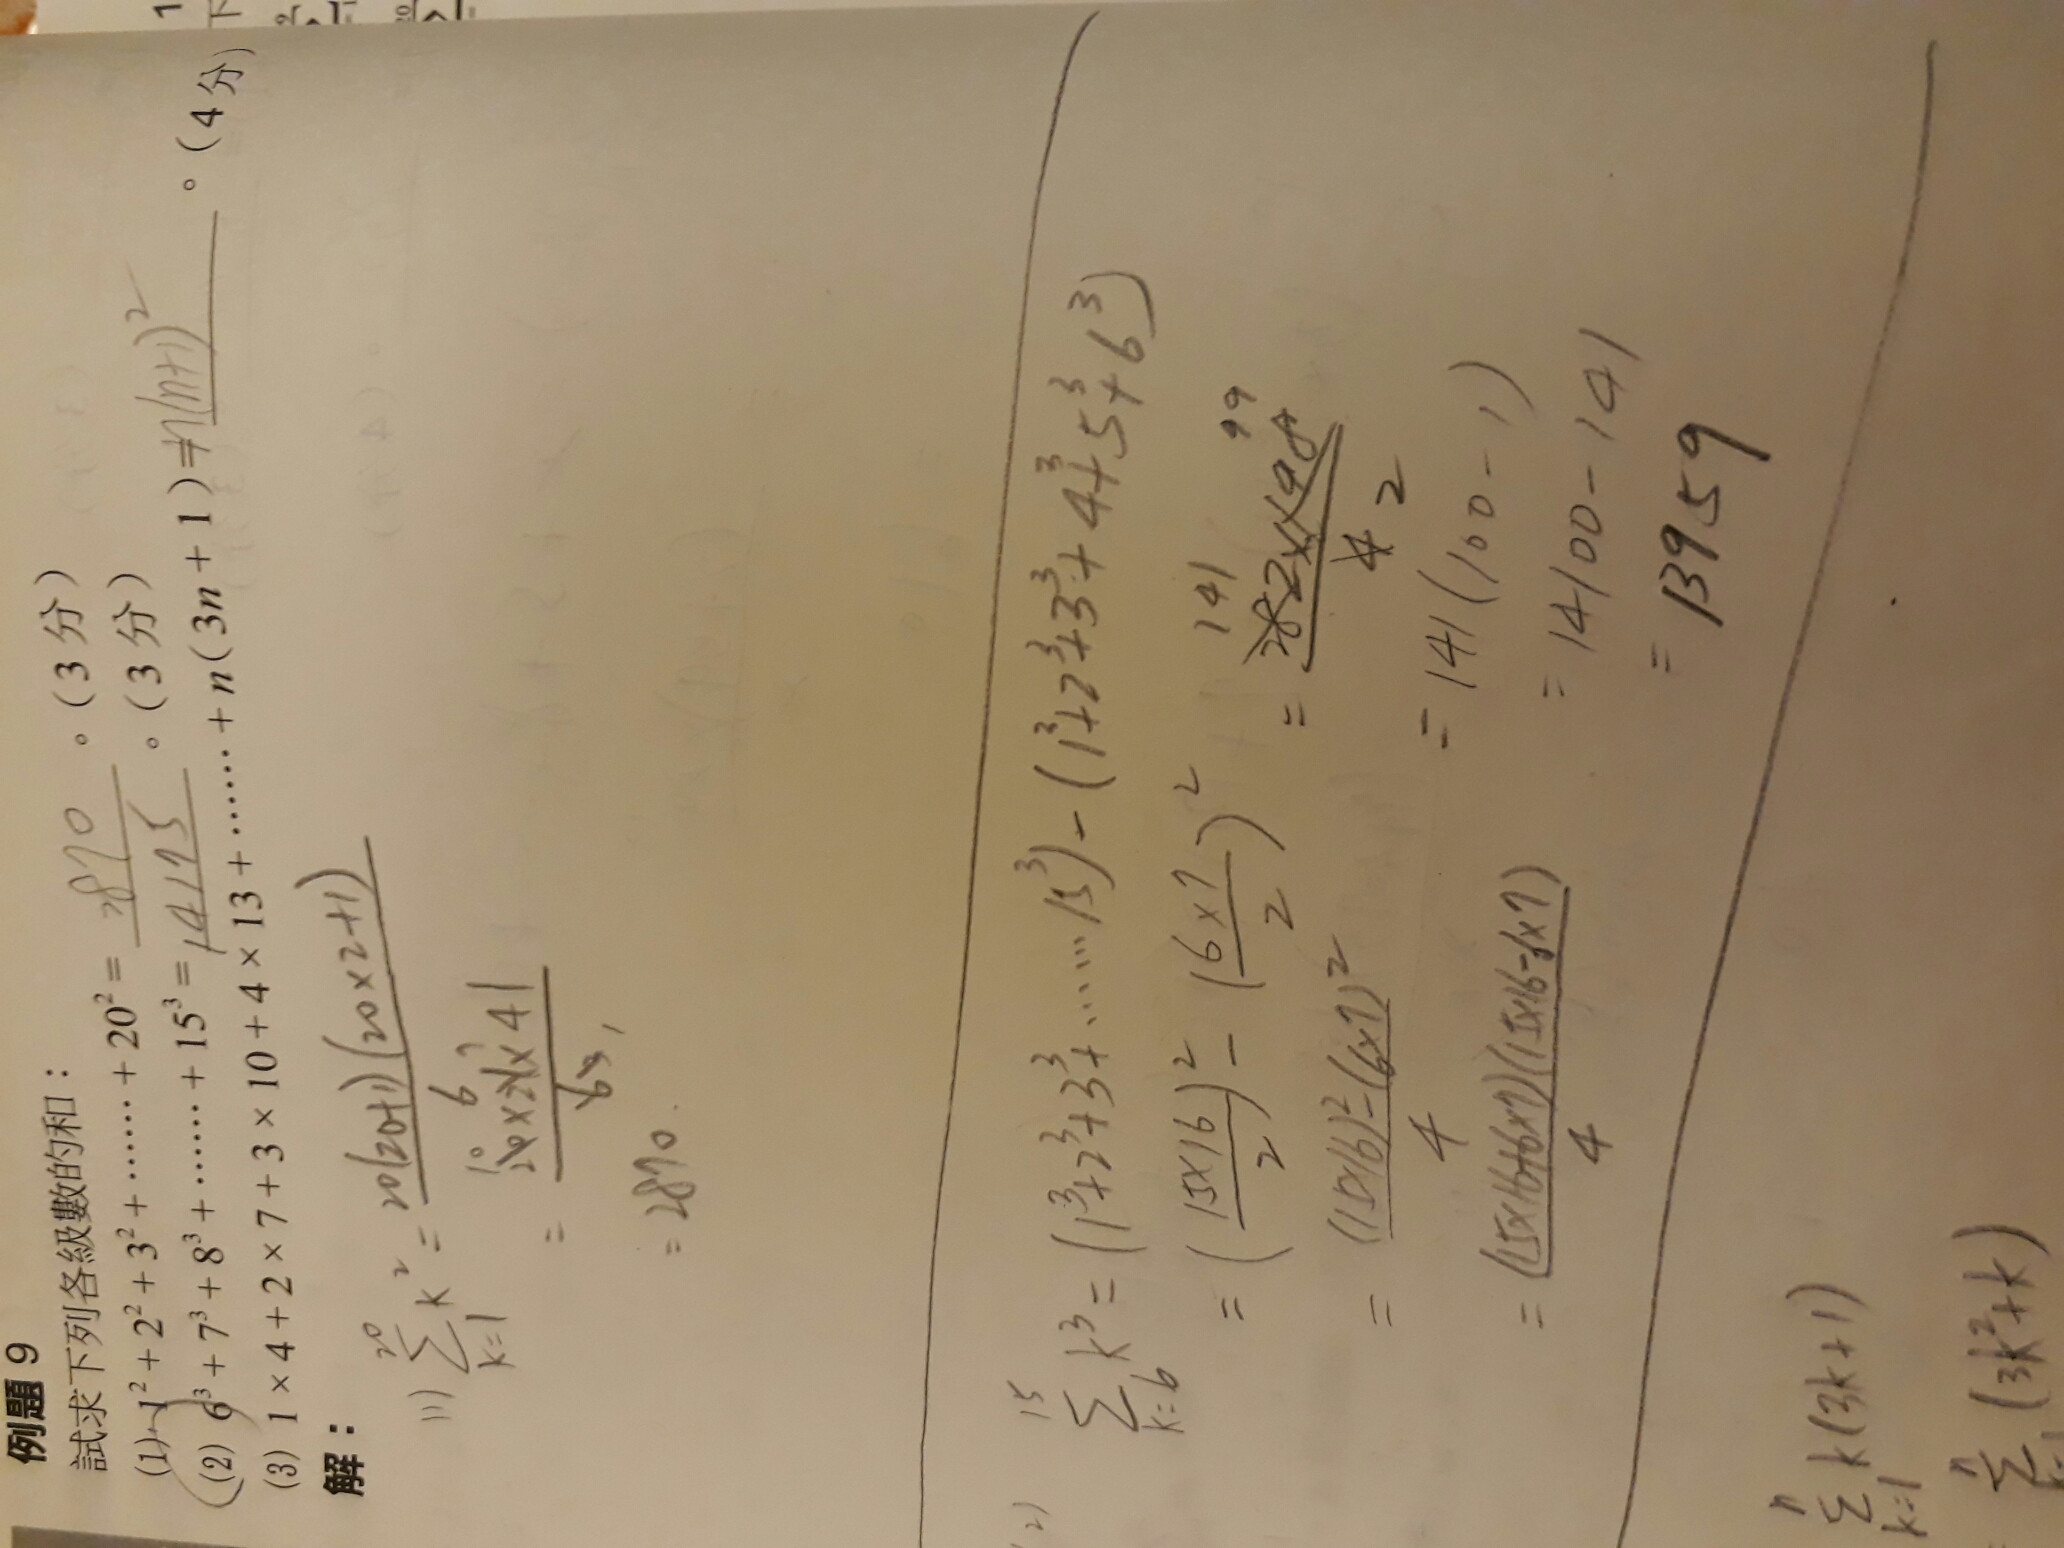 例題 9
試求下列各級數的和：
(1) 1² + 2² + 3² + …… + 20² = 2870 。(3 分)
(2) 6³ + 7³ + 8³ + …… + 15³ = 14175 。(3 分)
(3) 1 × 4 + 2 × 7 + 3 × 10 + 4 × 13 + …… + n(3n + 1) = n(n+1)² 。(4 分)
解：
(1) 20 Σ k=1 k² = 20(20+1)(20×2+1)
= 20×21×41 / 6
= 2870
(2) 15 Σ k=6 k³ = (1³+2³+3³+……15³) - (1³+2³+3³+4³+5³+6³)
= (15×16 / 2)² - (6×7 / 2)²
= (15×16)² - (6×7)² / 4
= (15×16+6×7)(15×16-6×7) / 4
141 99
= 282×198 / 4 2
= 141(100-1)
= 14100-141
= 13959
n Σ k=1 k(3k+1)
= n Σ (3k²+k)